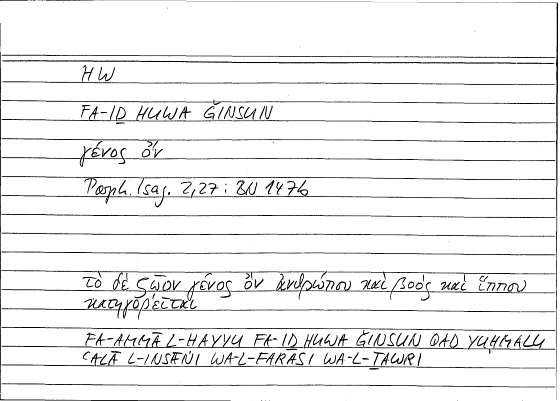 HW
FA-IḎ HUWA ǦINSUN
γένος ὄν
Porph. Isag. 2,27; BN 147b
τὸ δὲ ζῷον γένος ὂν ἀνθρώπου καὶ βοὸς καὶ ἵππου
κατηγορεῖται
FA-AMMĀ L-HAYYU FA-IḎ HUWA ǦINSUN QAD YUḤMALU
ʿALĀ L-INSĀNI WA-L-FARASI WA-L-ṮAWRI